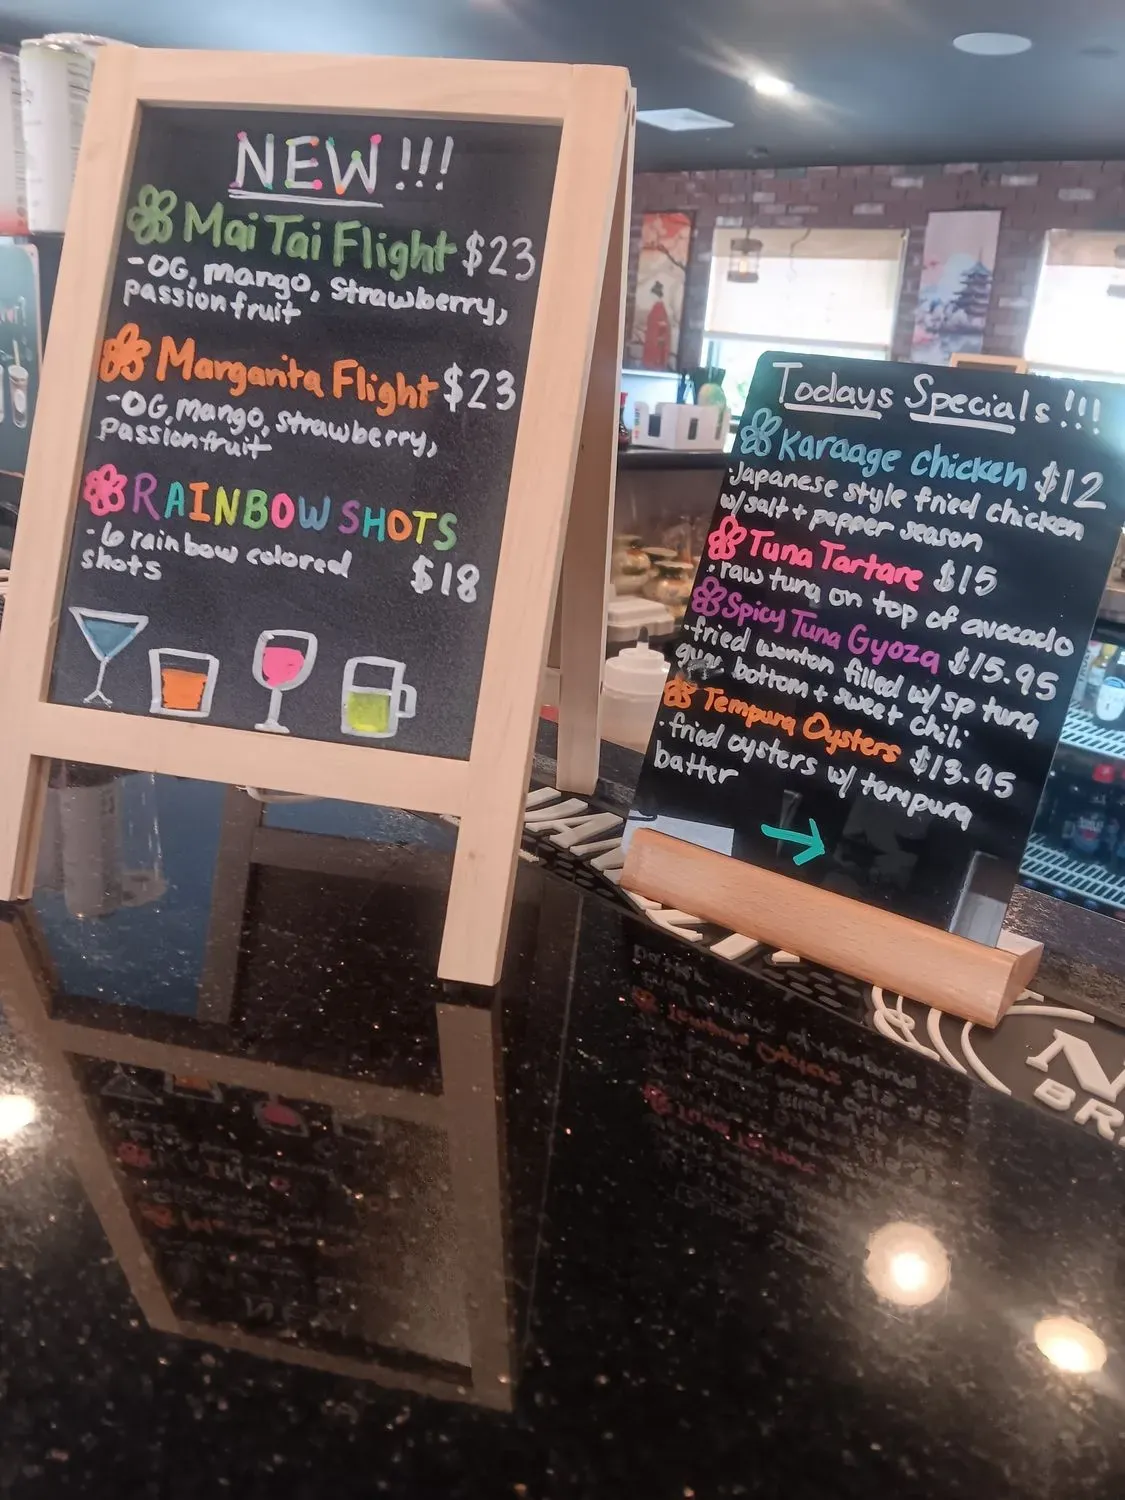 NEW!!!
Mai Tai Flight $23
-OG, mango, strawberry,
passionfruit
Margarita Flight $23
-OG, mango, strawberry,
passionfruit
RAINBOW SHOTS
-6 rainbow colored $18
shots
Todays Specials!!!
Karaage chicken $12
·Japanese style fried chicken
w/salt + pepper season
Tuna Tartare $15
·raw tuna on top of avocado
Spicy Tuna Gyoza $15.95
·fried wonton filled w/ sp tuna
bottom + sweet chili
Tempura Oysters $13.95
·fried oysters w/ tempura
batter